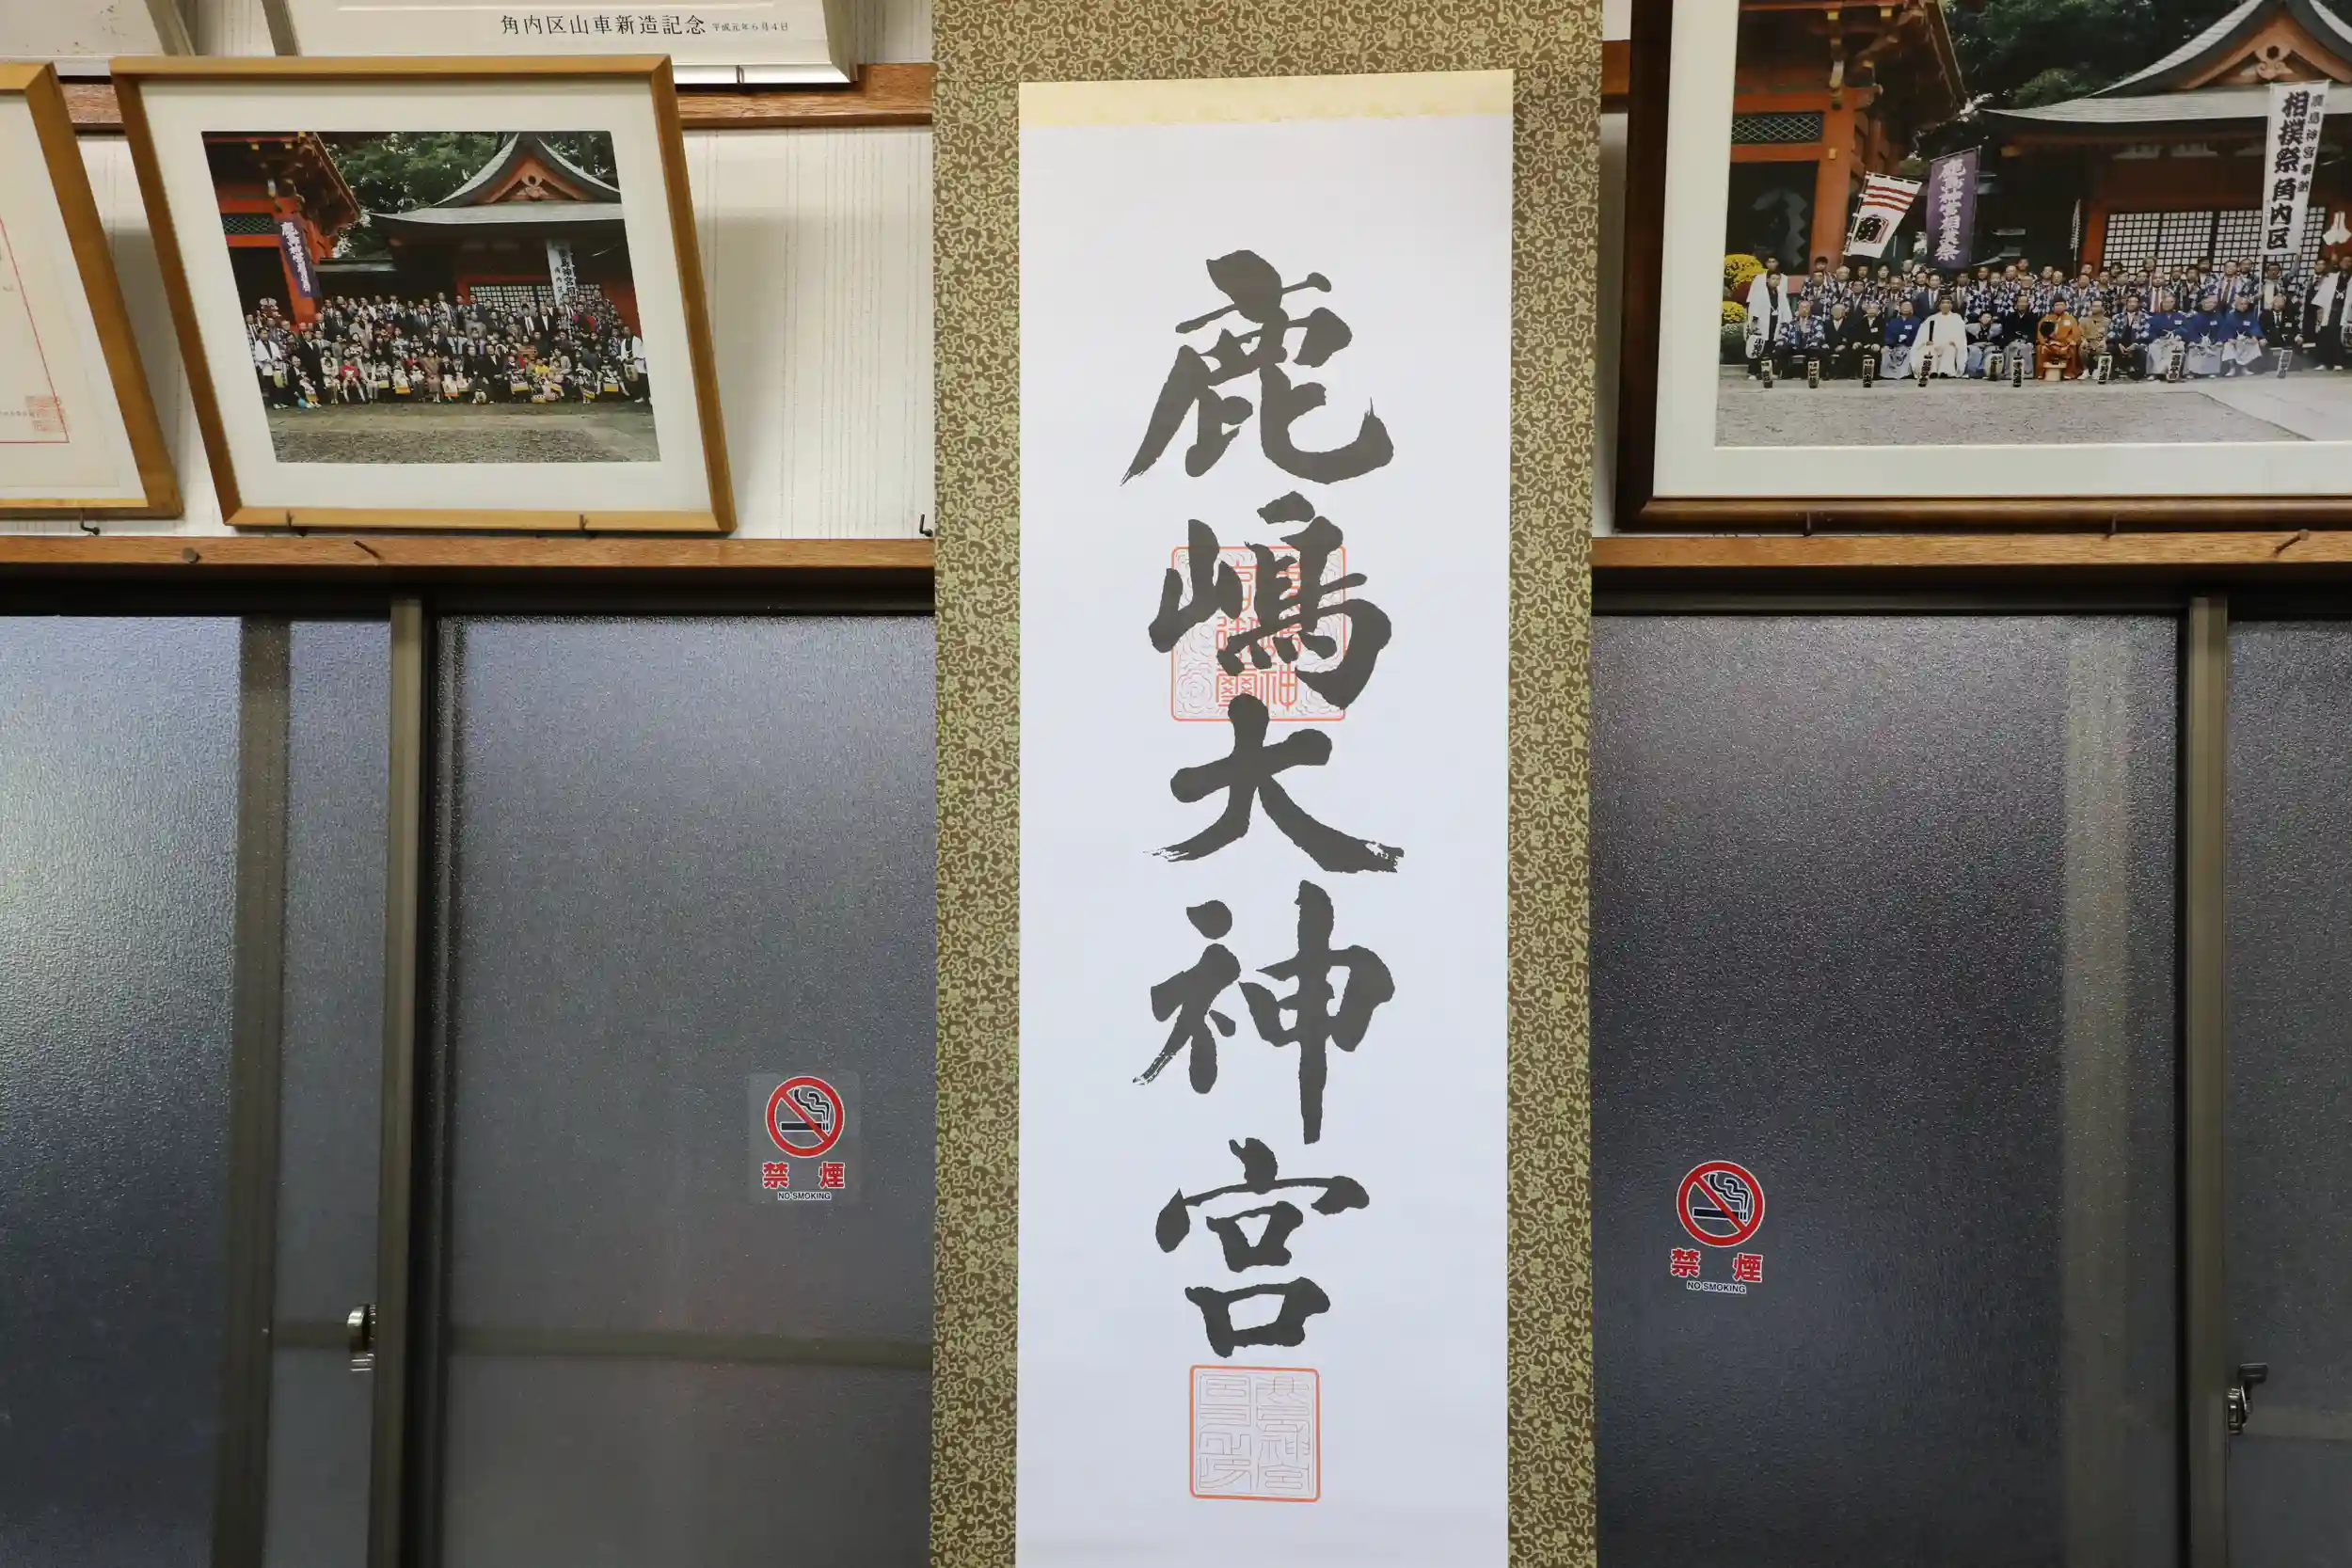 角内区山車新造記念 平成元年6月4日
鹿嶋大神宮
鹿島神宮奉納
相撲祭 角内区
鹿島神宮相撲祭
角
禁煙
NO SMOKING
禁煙
NO SMOKING